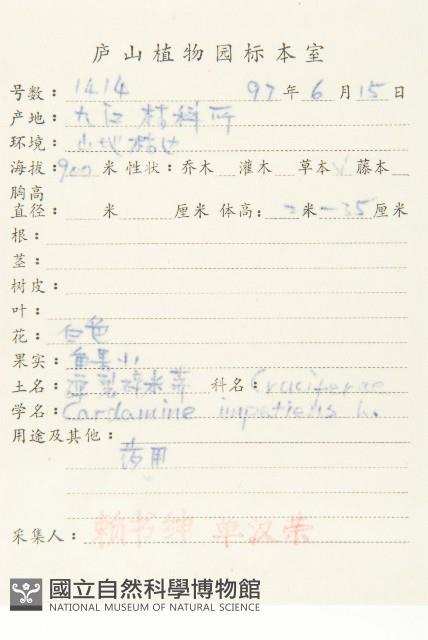 庐山植物园标本室
号数: 1414 97年6月15日
产地: 九江 林科所
环境: 山地林边
海拔: 900米 性状: 乔木 灌木 草本√ 藤本
胸高
直径: 米 厘米 体高: 米 35厘米
根:
茎:
树皮:
叶:
花: 白色
果实: 角果小
土名: 弹裂碎米荠 科名: Cruciferae
学名: Cardamine impatiens L.
用途及其他:
药用
采集人: 赖书绅 单汉荣
國立自然科學博物館
NATIONAL MUSEUM OF NATURAL SCIENCE